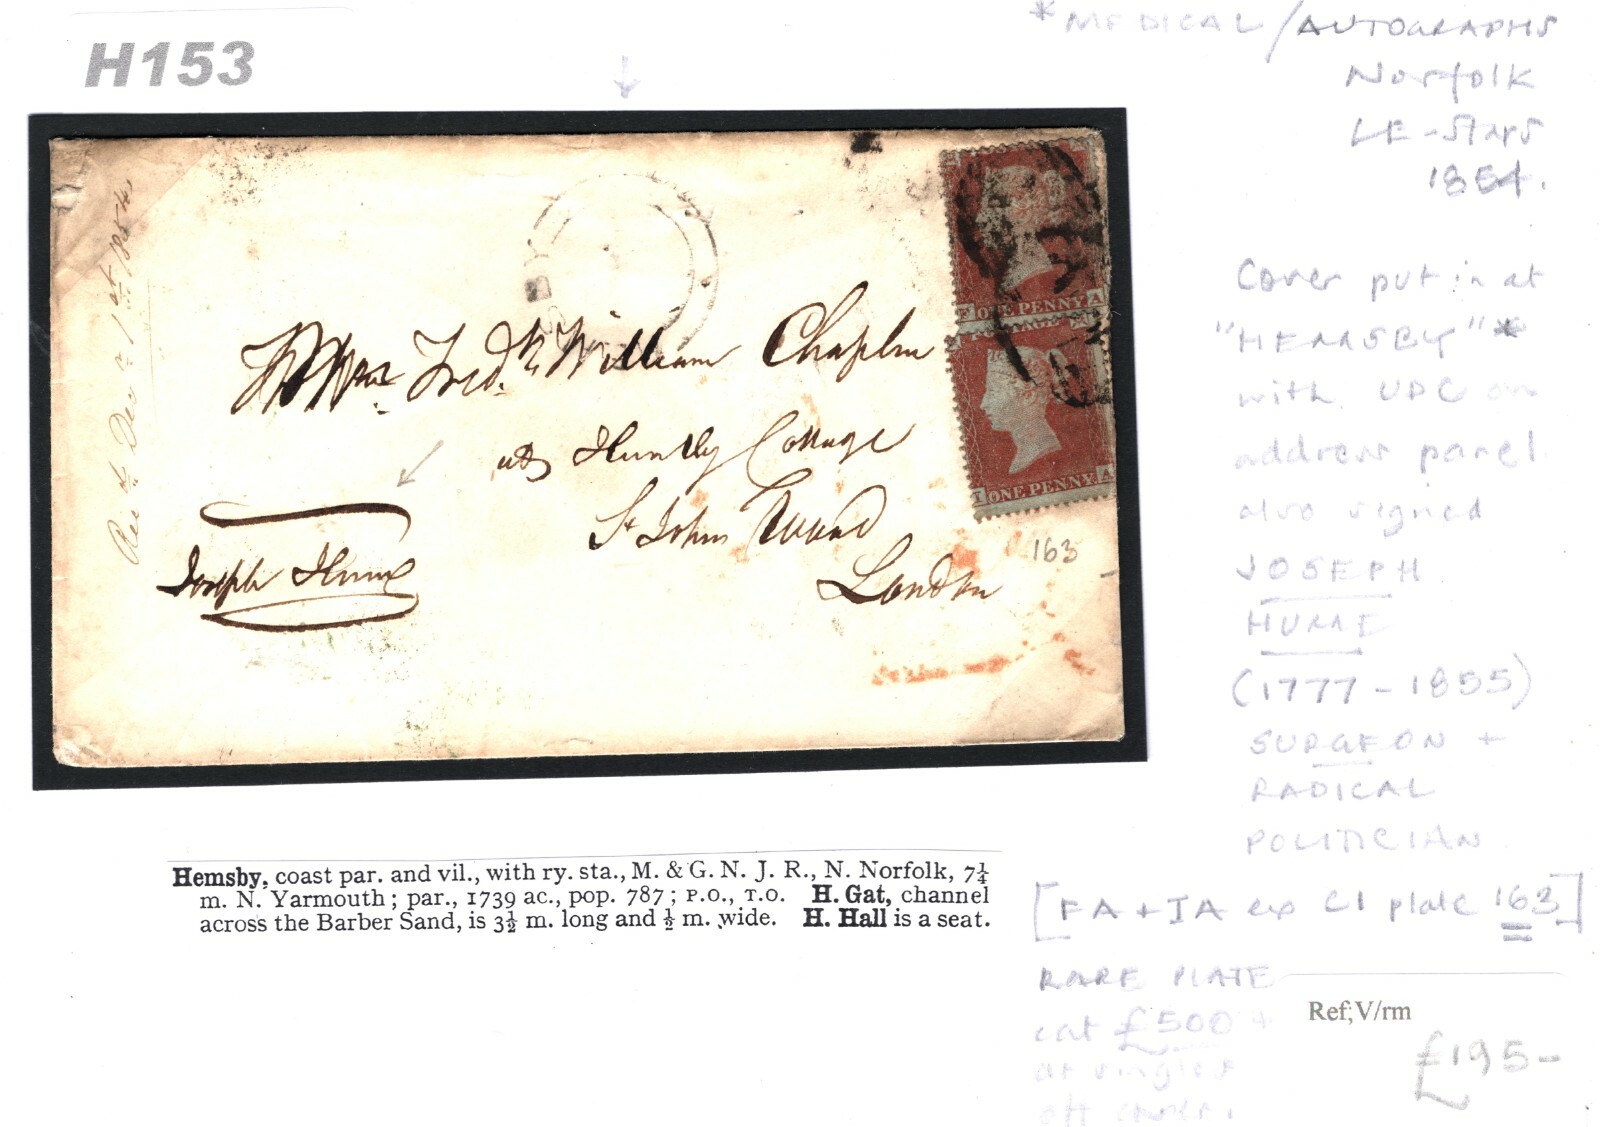 H153
*MEDICAL/AUTOGRAPHS
Norfolk
LE-Stars
1854.
Cover put in at
"HEMSBY"*
with UDC on
address panel
also signed
JOSEPH
HUME
(1777-1855)
SURGEON +
RADICAL
POLITICIAN
[FA+IA ex C1 plate 163]
RARE PLATE
cat £500+
as singles
off cover.
Ref;V/rm
£195-
Dec 1st 1854
SBY
Fredk William Chaplin
Huntly Cottage
St Johns Wood
London
Joseph Hume
F ONE PENNY A
I ONE PENNY A
163
Hemsby, coast par. and vil., with ry. sta., M. & G. N. J. R., N. Norfolk, 7¼
m. N. Yarmouth; par., 1739 ac., pop. 787; P.O., T.O. H. Gat, channel
across the Barber Sand, is 3½ m. long and ½ m. wide. H. Hall is a seat.